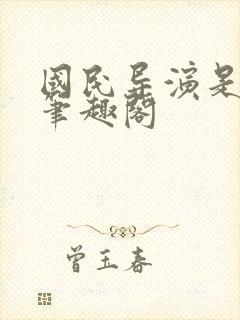 國民导演是
筆趣閣
曾玉春